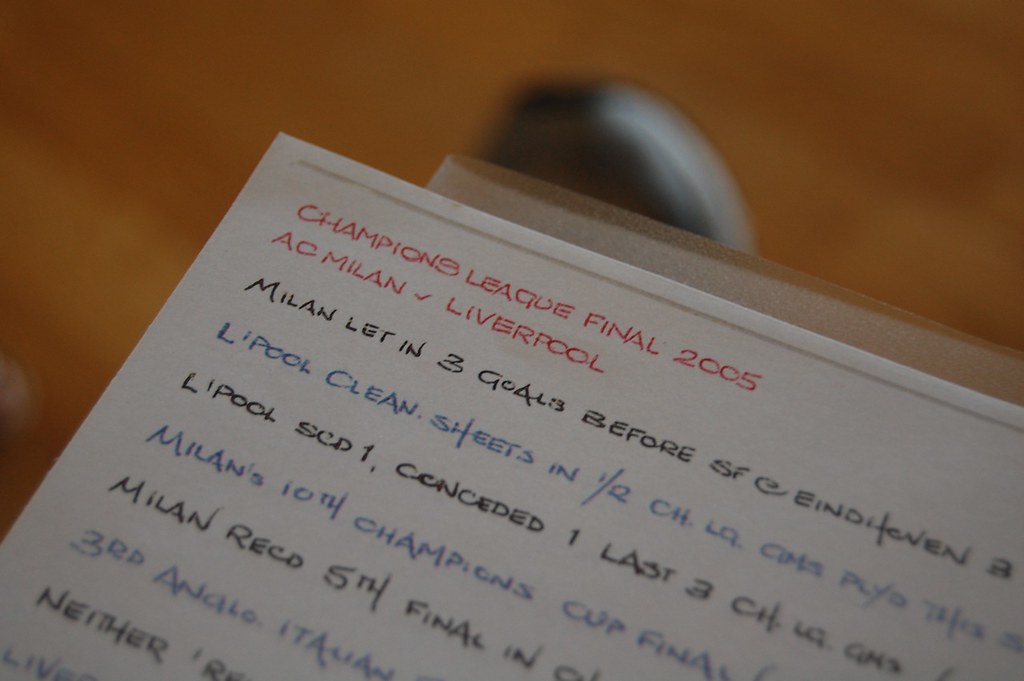 CHAMPIONS LEAGUE FINAL 2005
AC MILAN v LIVERPOOL
MILAN LET IN 3 GOALS BEFORE SF @ EINDHOVEN 3
L'POOL CLEAN. SHEETS IN 1/2 CH. LG. GMS PLY'D THIS S
L'POOL SCD 1, CONCEDED 1 LAST 3 CH. LG. GMS
MILAN'S 10TH CHAMPIONS CUP FINAL (
MILAN RECD 5TH FINAL IN
3RD ANGLO. ITALIAN
NEITHER 'RE
LIVER